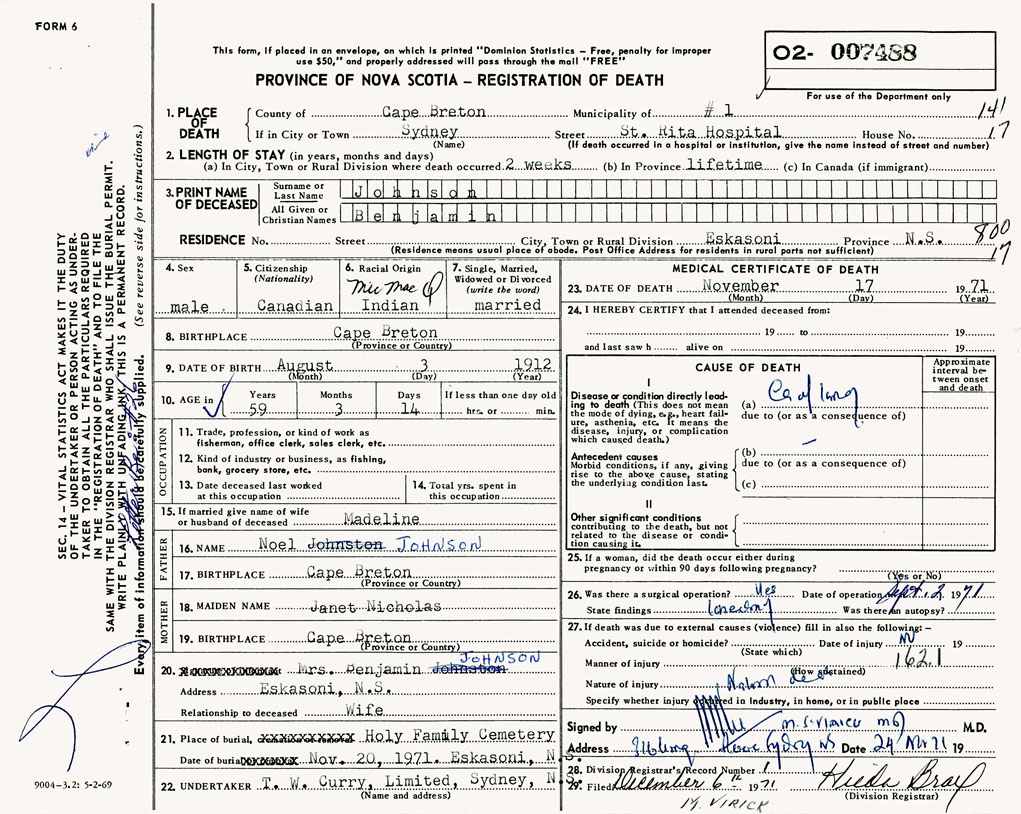 FORM 6
This form, if placed in an envelope, on which is printed "Dominion Statistics – Free, penalty for improper
use $50," and properly addressed will pass through the mail "FREE"
PROVINCE OF NOVA SCOTIA – REGISTRATION OF DEATH
02- 007488
For use of the Department only
1. PLACE OF DEATH
County of Cape Breton Municipality of #1 141
If in City or Town Sydney Street St. Rita Hospital House No. 17
(Name) (If death occurred in a hospital or institution, give the name instead of street and number)
2. LENGTH OF STAY (in years, months and days)
(a) In City, Town or Rural Division where death occurred 2 weeks (b) In Province lifetime (c) In Canada (if immigrant)
3. PRINT NAME OF DECEASED
Surname or Last Name Johnson
All Given or Christian Names Benjamin
RESIDENCE No. Street City, Town or Rural Division Eskasoni Province N.S. 800
(Residence means usual place of abode. Post Office Address for residents in rural parts not sufficient) 17
4. Sex
male
5. Citizenship
(Nationality)
Canadian
6. Racial Origin
Mic Mac
Indian
7. Single, Married,
Widowed or Divorced
(write the word)
married
8. BIRTHPLACE Cape Breton
(Province or Country)
9. DATE OF BIRTH August 3 1912
(Month) (Day) (Year)
10. AGE in Years Months Days If less than one day old
59 3 14 hrs. or min.
OCCUPATION
11. Trade, profession, or kind of work as
fisherman, office clerk, sales clerk, etc.
12. Kind of industry or business, as fishing,
bank, grocery store, etc.
13. Date deceased last worked
at this occupation
14. Total yrs. spent in
this occupation
15. If married give name of wife
or husband of deceased Madeline
FATHER
16. NAME Noel Johnston JOHNSON
17. BIRTHPLACE Cape Breton
(Province or Country)
MOTHER
18. MAIDEN NAME Janet Nicholas
19. BIRTHPLACE Cape Breton
(Province or Country)
JOHNSON
20. Mrs. Benjamin Johnston
Address Eskasoni, N.S.
Relationship to deceased Wife
21. Place of burial, Holy Family Cemetery
Date of burial Nov. 20, 1971. Eskasoni, N.S.
22. UNDERTAKER T. W. Curry, Limited, Sydney, N.S.
(Name and address)
MEDICAL CERTIFICATE OF DEATH
23. DATE OF DEATH November 17 1971
(Month) (Day) (Year)
24. I HEREBY CERTIFY that I attended deceased from:
19 to 19
and last saw h alive on 19
CAUSE OF DEATH
Approximate
interval be-
tween onset
and death
I
Disease or condition directly lead-
ing to death (This does not mean
the mode of dying, e.g., heart fail-
ure, asthenia, etc. It means the
disease, injury, or complication
which caused death.)
(a) Ca of lung
due to (or as a consequence of)
Antecedent causes
Morbid conditions, if any, giving
rise to the above cause, stating
the underlying condition last.
(b)
due to (or as a consequence of)
(c)
II
Other significant conditions
contributing to the death, but not
related to the disease or condi-
tion causing it.
25. If a woman, did the death occur either during
pregnancy or within 90 days following pregnancy?
(Yes or No)
26. Was there a surgical operation? Yes Date of operation Sept. 2 1971
State findings Was there an autopsy?
27. If death was due to external causes (violence) fill in also the following:–
Accident, suicide or homicide? Date of injury 19
(State which)
Manner of injury 162.1
(How sustained)
Nature of injury
Specify whether injury occurred in industry, in home, or in public place
Signed by M.D.
Address Sydney NS Date 24 Nov 71 19
28. Division Registrar's Record Number 1
29. Filed December 6th 1971
(Division Registrar)
M. VIRICK
SEC. 14 – VITAL STATISTICS ACT MAKES IT THE DUTY
OF THE UNDERTAKER OR PERSON ACTING AS UNDER-
TAKER TO OBTAIN ALL THE PARTICULARS REQUIRED
IN THE "REGISTRATION OF DEATH" AND TO FILE THE
SAME WITH THE DIVISION REGISTRAR WHO SHALL ISSUE THE BURIAL PERMIT.
WRITE PLAINLY WITH UNFADING INK. THIS IS A PERMANENT RECORD.
Every item of information should be carefully supplied. (See reverse side for instructions.)
9004-3.2: 5-2-69